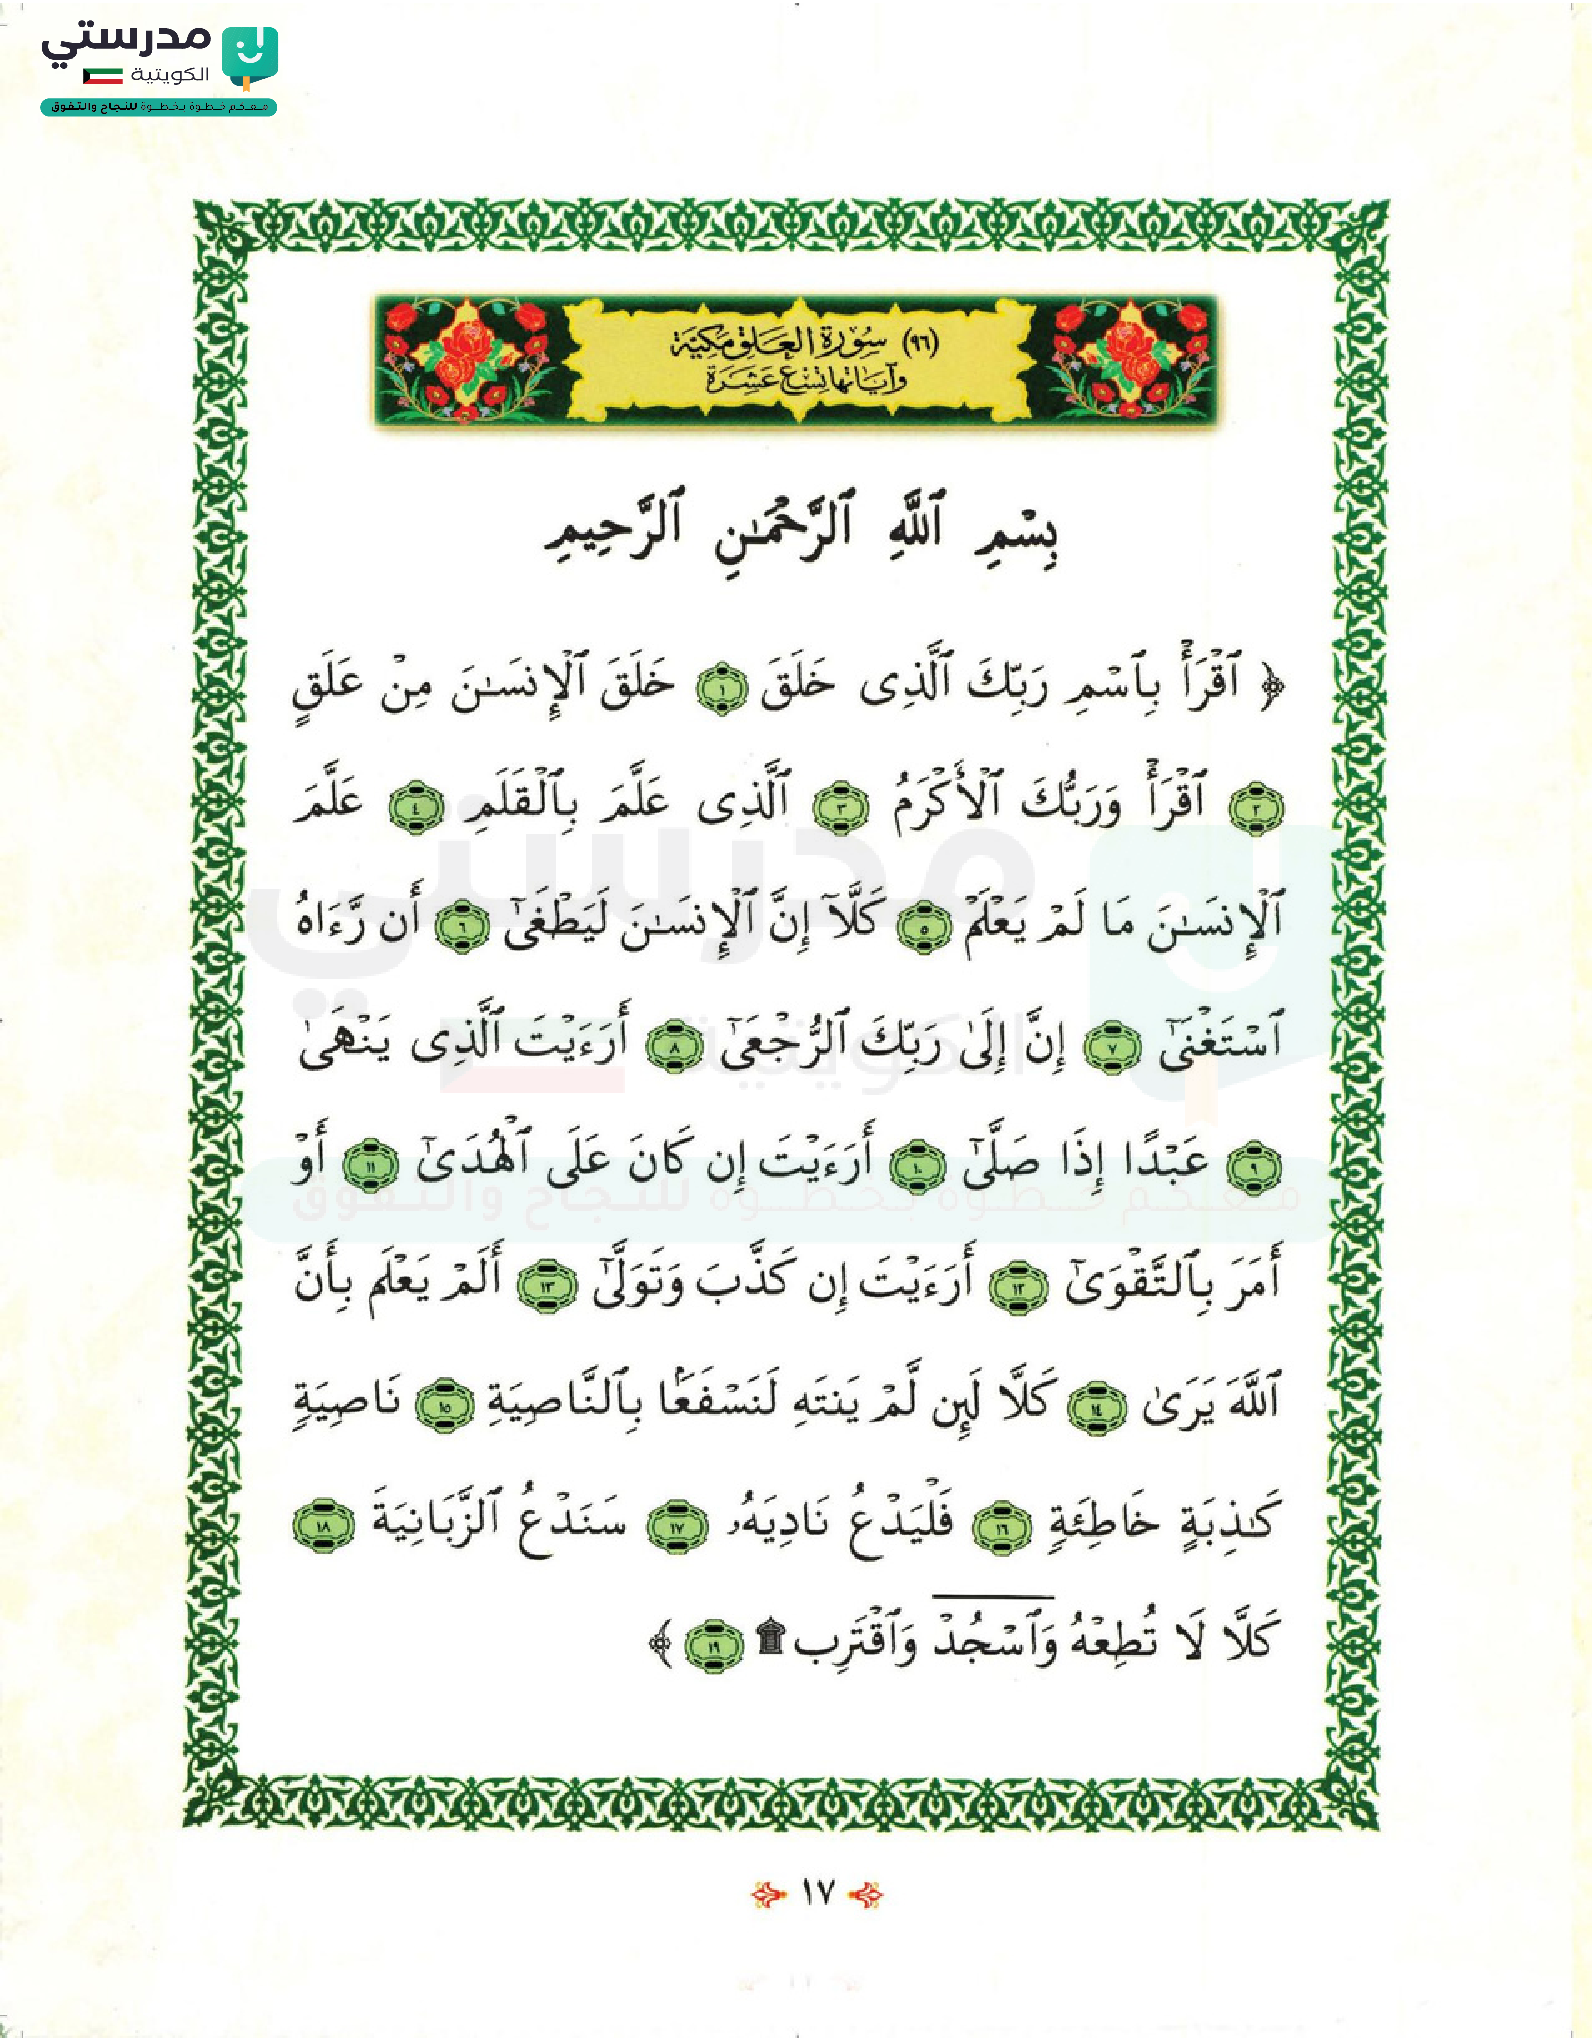 مدرستي
الكويتية
معكم خطوة بخطوة للنجاح والتفوق
(٩٦) سُورة العَلَق مَكيّة
وآيَاتها تِسْع عَشَرَة
بِسْمِ ٱللَّهِ ٱلرَّحْمَٰنِ ٱلرَّحِيمِ
﴿ ٱقْرَأْ بِٱسْمِ رَبِّكَ ٱلَّذِى خَلَقَ ١ خَلَقَ ٱلْإِنسَٰنَ مِنْ عَلَقٍ
٢ ٱقْرَأْ وَرَبُّكَ ٱلْأَكْرَمُ ٣ ٱلَّذِى عَلَّمَ بِٱلْقَلَمِ ٤ عَلَّمَ
ٱلْإِنسَٰنَ مَا لَمْ يَعْلَمْ ٥ كَلَّآ إِنَّ ٱلْإِنسَٰنَ لَيَطْغَىٰٓ ٦ أَن رَّءَاهُ
ٱسْتَغْنَىٰٓ ٧ إِنَّ إِلَىٰ رَبِّكَ ٱلرُّجْعَىٰٓ ٨ أَرَءَيْتَ ٱلَّذِى يَنْهَىٰ
٩ عَبْدًا إِذَا صَلَّىٰٓ ١٠ أَرَءَيْتَ إِن كَانَ عَلَى ٱلْهُدَىٰٓ ١١ أَوْ
أَمَرَ بِٱلتَّقْوَىٰٓ ١٢ أَرَءَيْتَ إِن كَذَّبَ وَتَوَلَّىٰٓ ١٣ أَلَمْ يَعْلَم بِأَنَّ
ٱللَّهَ يَرَىٰ ١٤ كَلَّا لَئِن لَّمْ يَنتَهِ لَنَسْفَعًۢا بِٱلنَّاصِيَةِ ١٥ نَاصِيَةٍ
كَٰذِبَةٍ خَاطِئَةٍ ١٦ فَلْيَدْعُ نَادِيَهُۥ ١٧ سَنَدْعُ ٱلزَّبَانِيَةَ ١٨
كَلَّا لَا تُطِعْهُ وَٱسْجُدْ وَٱقْتَرِب ۩ ١٩ ﴾
١٧